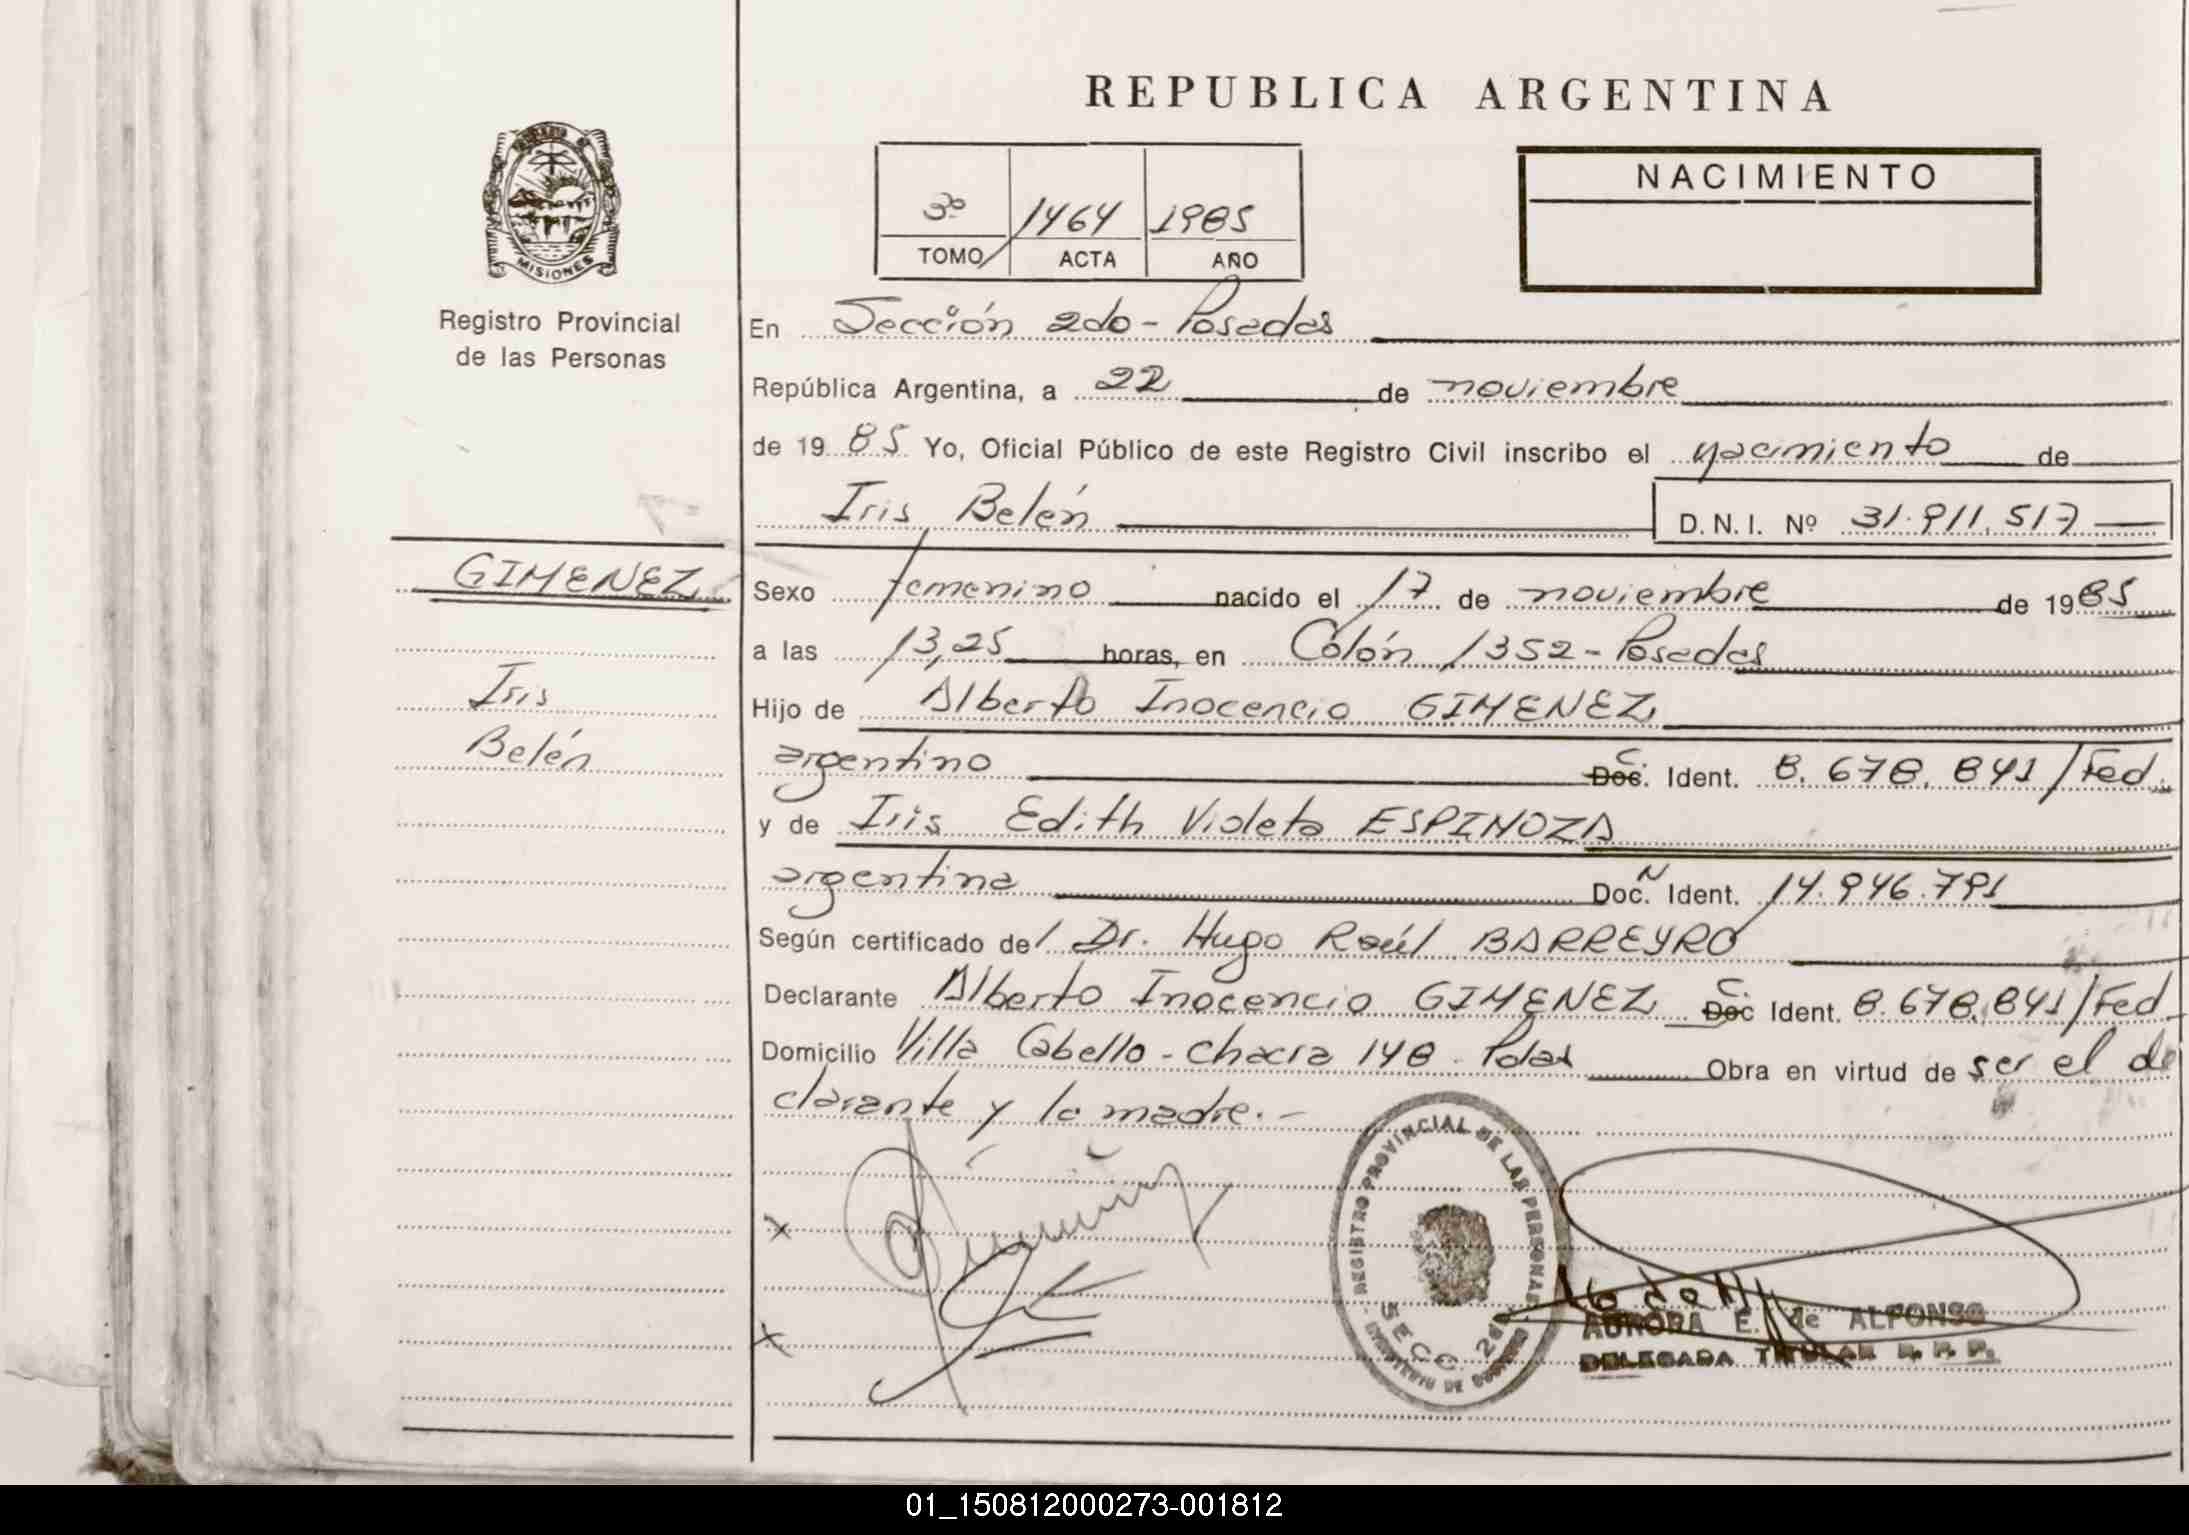 REPUBLICA ARGENTINA
MISIONES
Registro Provincial
de las Personas
3º 1464 1985
TOMO ACTA AÑO
NACIMIENTO
En Sección 2do - Posadas
República Argentina, a 22 de noviembre
de 1985 Yo, Oficial Público de este Registro Civil inscribo el nacimiento de
Iris Belén D.N.I. Nº 31.911.517
GIMENEZ
Iris
Belén
Sexo femenino nacido el 17 de noviembre de 1985
a las 13,25 horas, en Colón 1352 - Posadas
Hijo de Alberto Inocencio GIMENEZ
argentino Doc. C. Ident. 8.678.841/Fed.
y de Iris Edith Violeta ESPINOZA
argentina Doc. N Ident. 14.946.791
Según certificado del Dr. Hugo Raúl BARREYRO
Declarante Alberto Inocencio GIMENEZ Doc C. Ident. 8.678.841/Fed.
Domicilio Villa Cabello - Chacra 148 - Pdas Obra en virtud de ser el de
clarante y la madre. -
x
x
REGISTRO PROVINCIAL DE LAS PERSONAS
MINISTERIO DE GOBIERNO
SECC. 2da
AURORA E. de ALFONSO
DELEGADA TITULAR R. P. P.
01_150812000273-001812